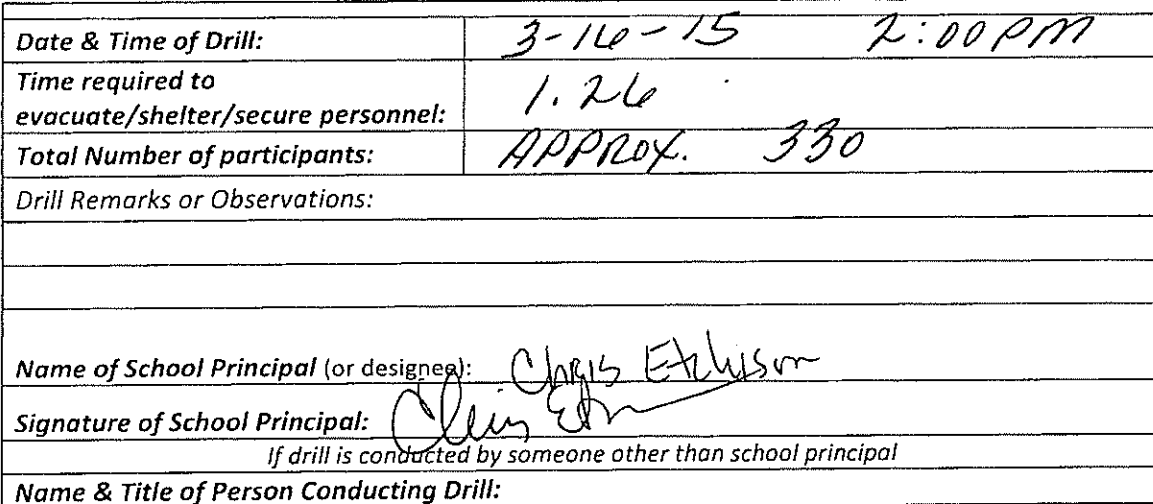 Date & Time of Drill: 3-16-15 2:00 PM
Time required to
evacuate/shelter/secure personnel: 1.26
Total Number of participants: APPROX. 330
Drill Remarks or Observations:
Name of School Principal (or designee): Chris Etchison
Signature of School Principal:
If drill is conducted by someone other than school principal
Name & Title of Person Conducting Drill: